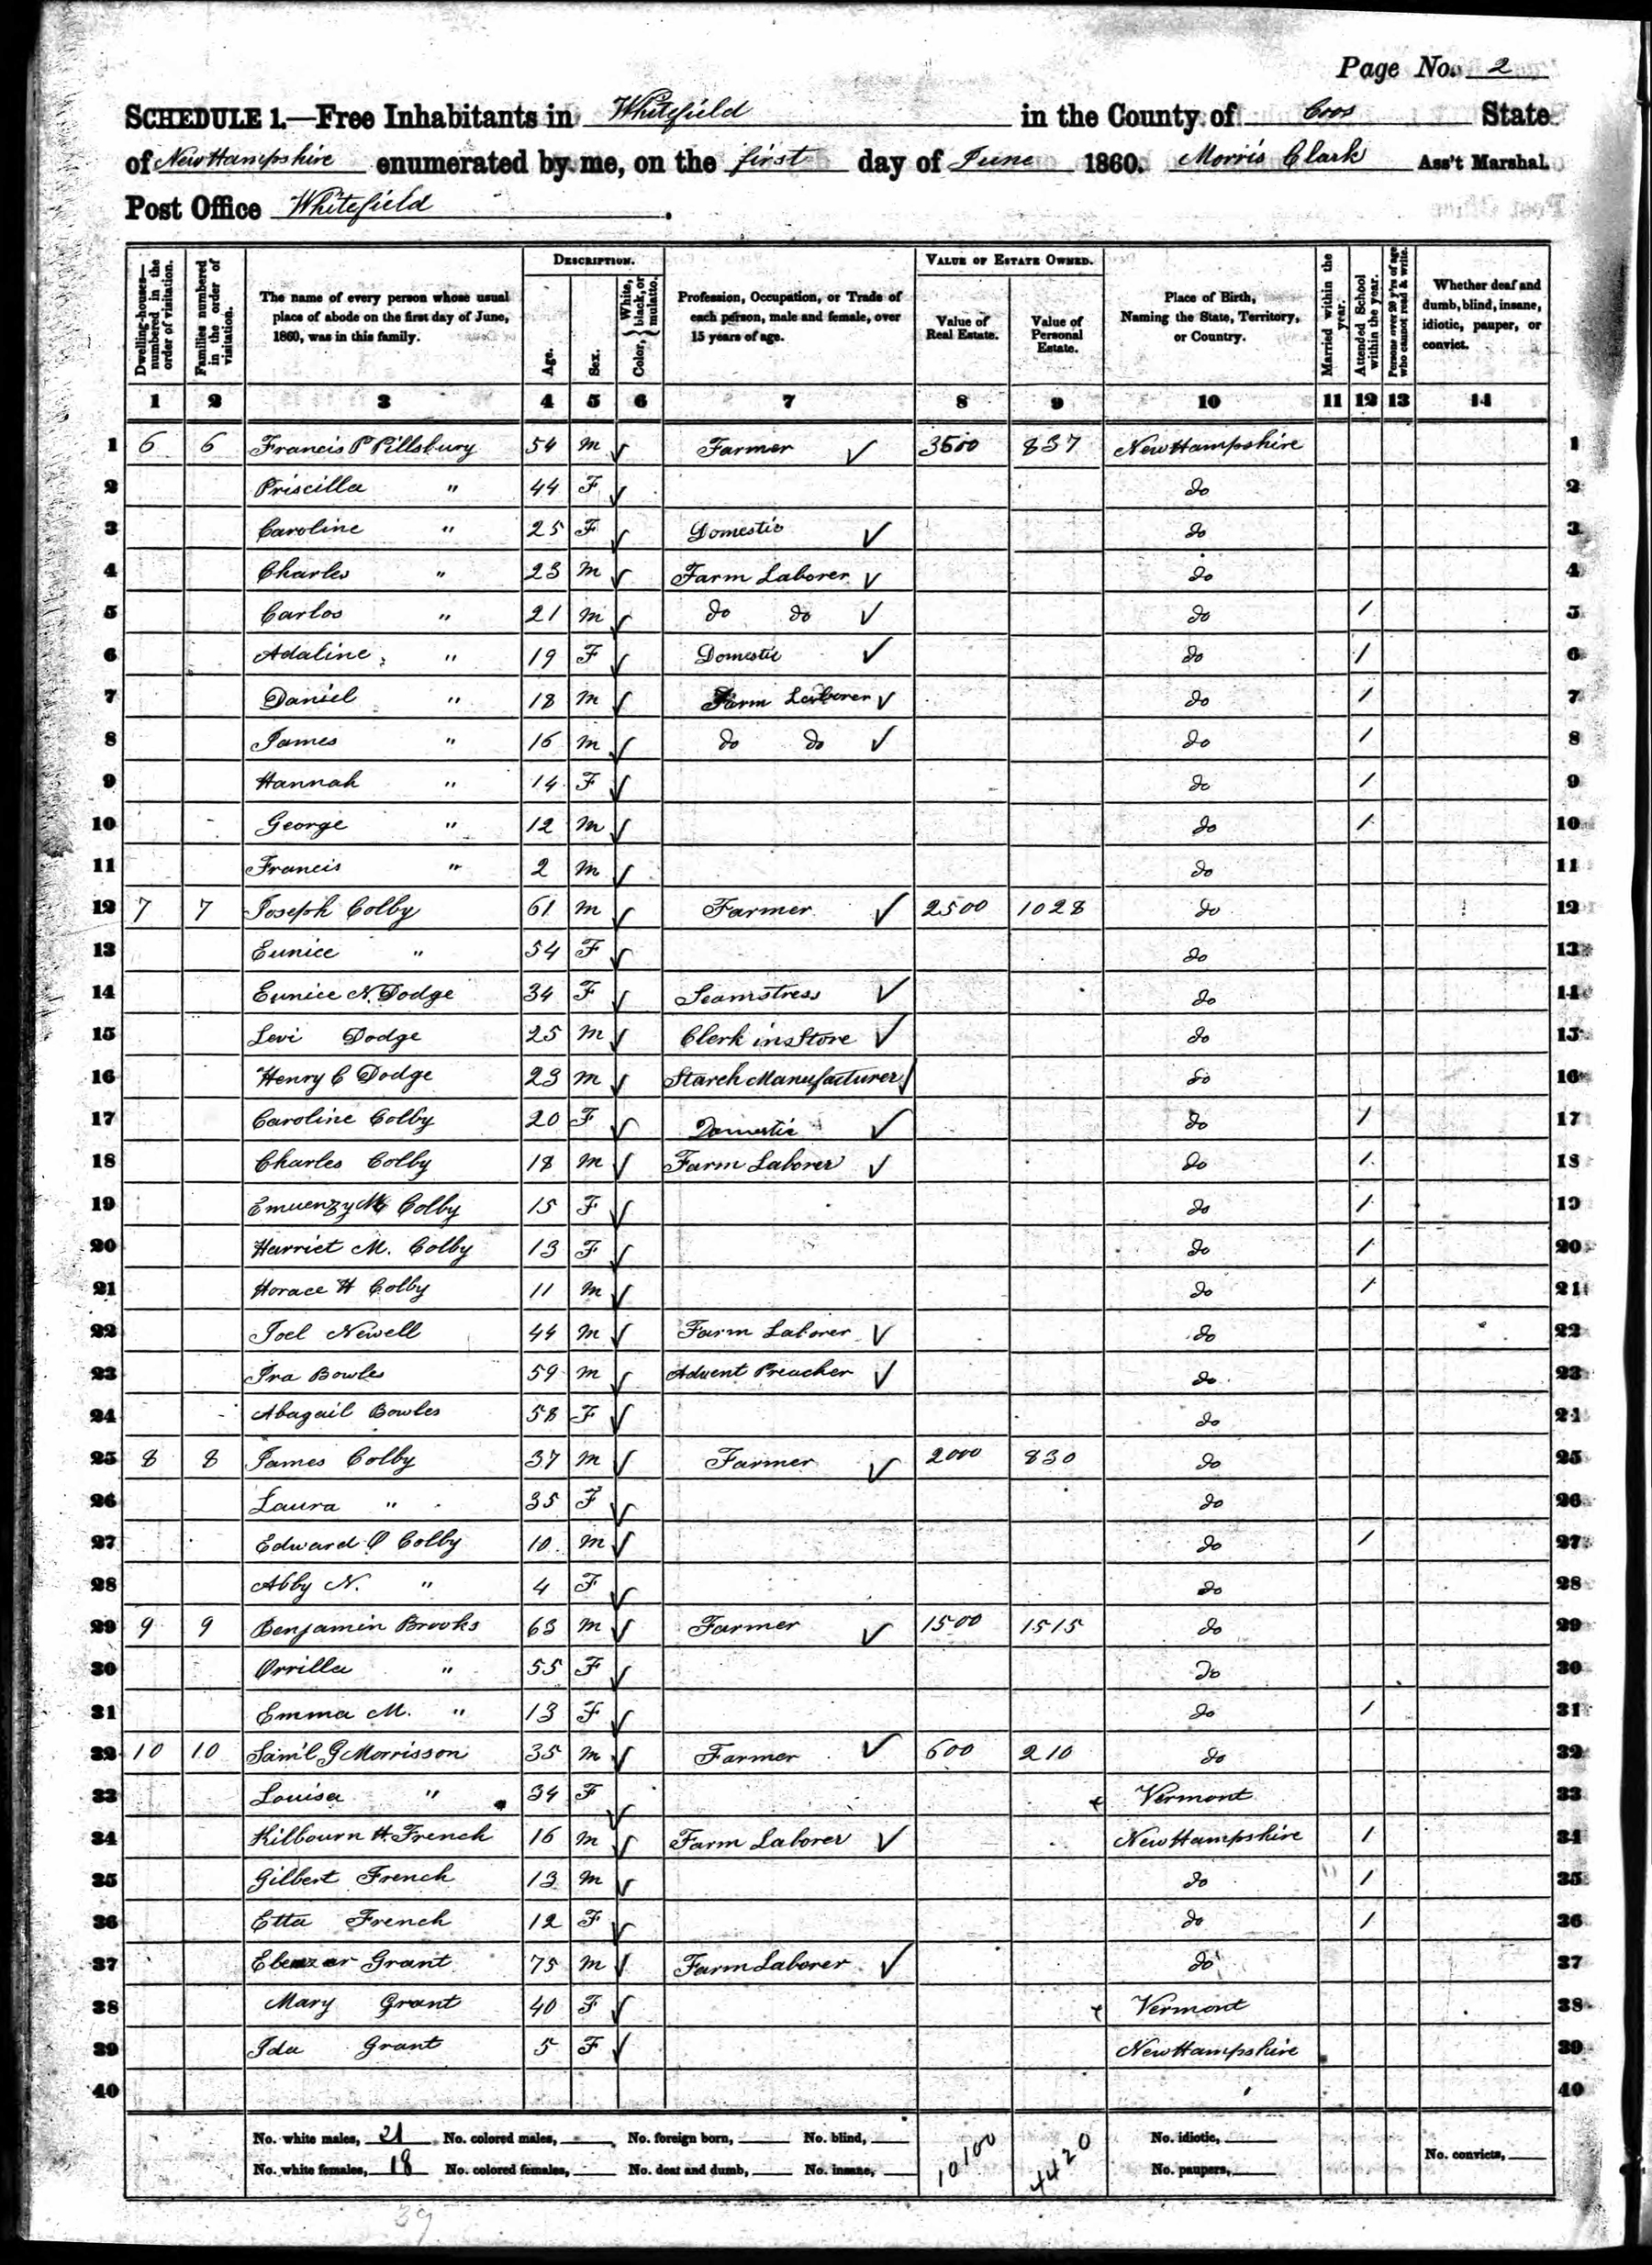 Page No. 2
SCHEDULE 1.—Free Inhabitants in Whitefield in the County of Coos State
of New Hampshire enumerated by me, on the first day of June 1860. Morris Clark Ass't Marshal.
Post Office Whitefield.
Dwelling-houses—numbered in the order of visitation.
Families numbered in the order of visitation.
The name of every person whose usual place of abode on the first day of June, 1860, was in this family.
DESCRIPTION.
Age.
Sex.
Color, { White, black, or mulatto.
Profession, Occupation, or Trade of each person, male and female, over 15 years of age.
VALUE OF ESTATE OWNED.
Value of Real Estate.
Value of Personal Estate.
Place of Birth, Naming the State, Territory, or Country.
Married within the year.
Attended School within the year.
Persons over 20 y'rs of age who cannot read & write.
Whether deaf and dumb, blind, insane, idiotic, pauper, or convict.
1 2 3 4 5 6 7 8 9 10 11 12 13 14
1 6 6 Francis P Pillsbury 54 m ✓ Farmer ✓ 3500 837 New Hampshire 1
2 Priscilla " 44 F ✓ do 2
3 Caroline " 25 F ✓ Domestic ✓ do 3
4 Charles " 23 m ✓ Farm Laborer ✓ do 4
5 Carlos " 21 m ✓ do do ✓ do / 5
6 Adaline " 19 F ✓ Domestic ✓ do / 6
7 Daniel " 18 m ✓ Farm Laborer ✓ do / 7
8 James " 16 m ✓ do do ✓ do / 8
9 Hannah " 14 F ✓ do / 9
10 George " 12 m ✓ do / 10
11 Francis " 2 m ✓ do 11
12 7 7 Joseph Colby 61 m ✓ Farmer ✓ 2500 1028 do 12
13 Eunice " 54 F ✓ do 13
14 Eunice N. Dodge 34 F ✓ Seamstress ✓ do 14
15 Levi Dodge 25 m ✓ Clerk in Store ✓ do 15
16 Henry C Dodge 23 m ✓ Starch Manufacturer ✓ do 16
17 Caroline Colby 20 F ✓ Domestic ✓ do / 17
18 Charles Colby 18 m ✓ Farm Laborer ✓ do / 18
19 Colby 15 F ✓ do / 19
20 Harriet M. Colby 13 F ✓ do / 20
21 Horace H Colby 11 m ✓ do / 21
22 Joel Newell 44 m ✓ Farm Laborer ✓ do 22
23 Ira Bowles 59 m ✓ Advent Preacher ✓ do 23
24 Abagail Bowles 58 F ✓ do 24
25 8 8 James Colby 37 m ✓ Farmer ✓ 2000 830 do 25
26 Laura " 35 F ✓ do 26
27 Edward O Colby 10 m ✓ do / 27
28 Abby N. " 4 F ✓ do 28
29 9 9 Benjamin Brooks 63 m ✓ Farmer ✓ 1500 1515 do 29
30 Orrilla " 55 F ✓ do 30
31 Emma M. " 13 F ✓ do / 31
32 10 10 Saml G Morrisson 35 m ✓ Farmer ✓ 600 210 do 32
33 Louisa " 34 F ✓ Vermont 33
34 Kilbourn H. French 16 m ✓ Farm Laborer ✓ New Hampshire / 34
35 Gilbert French 13 m ✓ do / 35
36 Etta French 12 F ✓ do / 36
37 Ebenezer Grant 75 m ✓ Farm Laborer ✓ do 37
38 Mary Grant 40 F ✓ Vermont 38
39 Ida Grant 5 F ✓ New Hampshire 39
40 40
No. white males, 21 No. colored males, No. foreign born, No. blind, 10100 4420 No. idiotic,
No. white females, 18 No. colored females, No. deaf and dumb, No. insane, No. paupers, No. convicts,
39